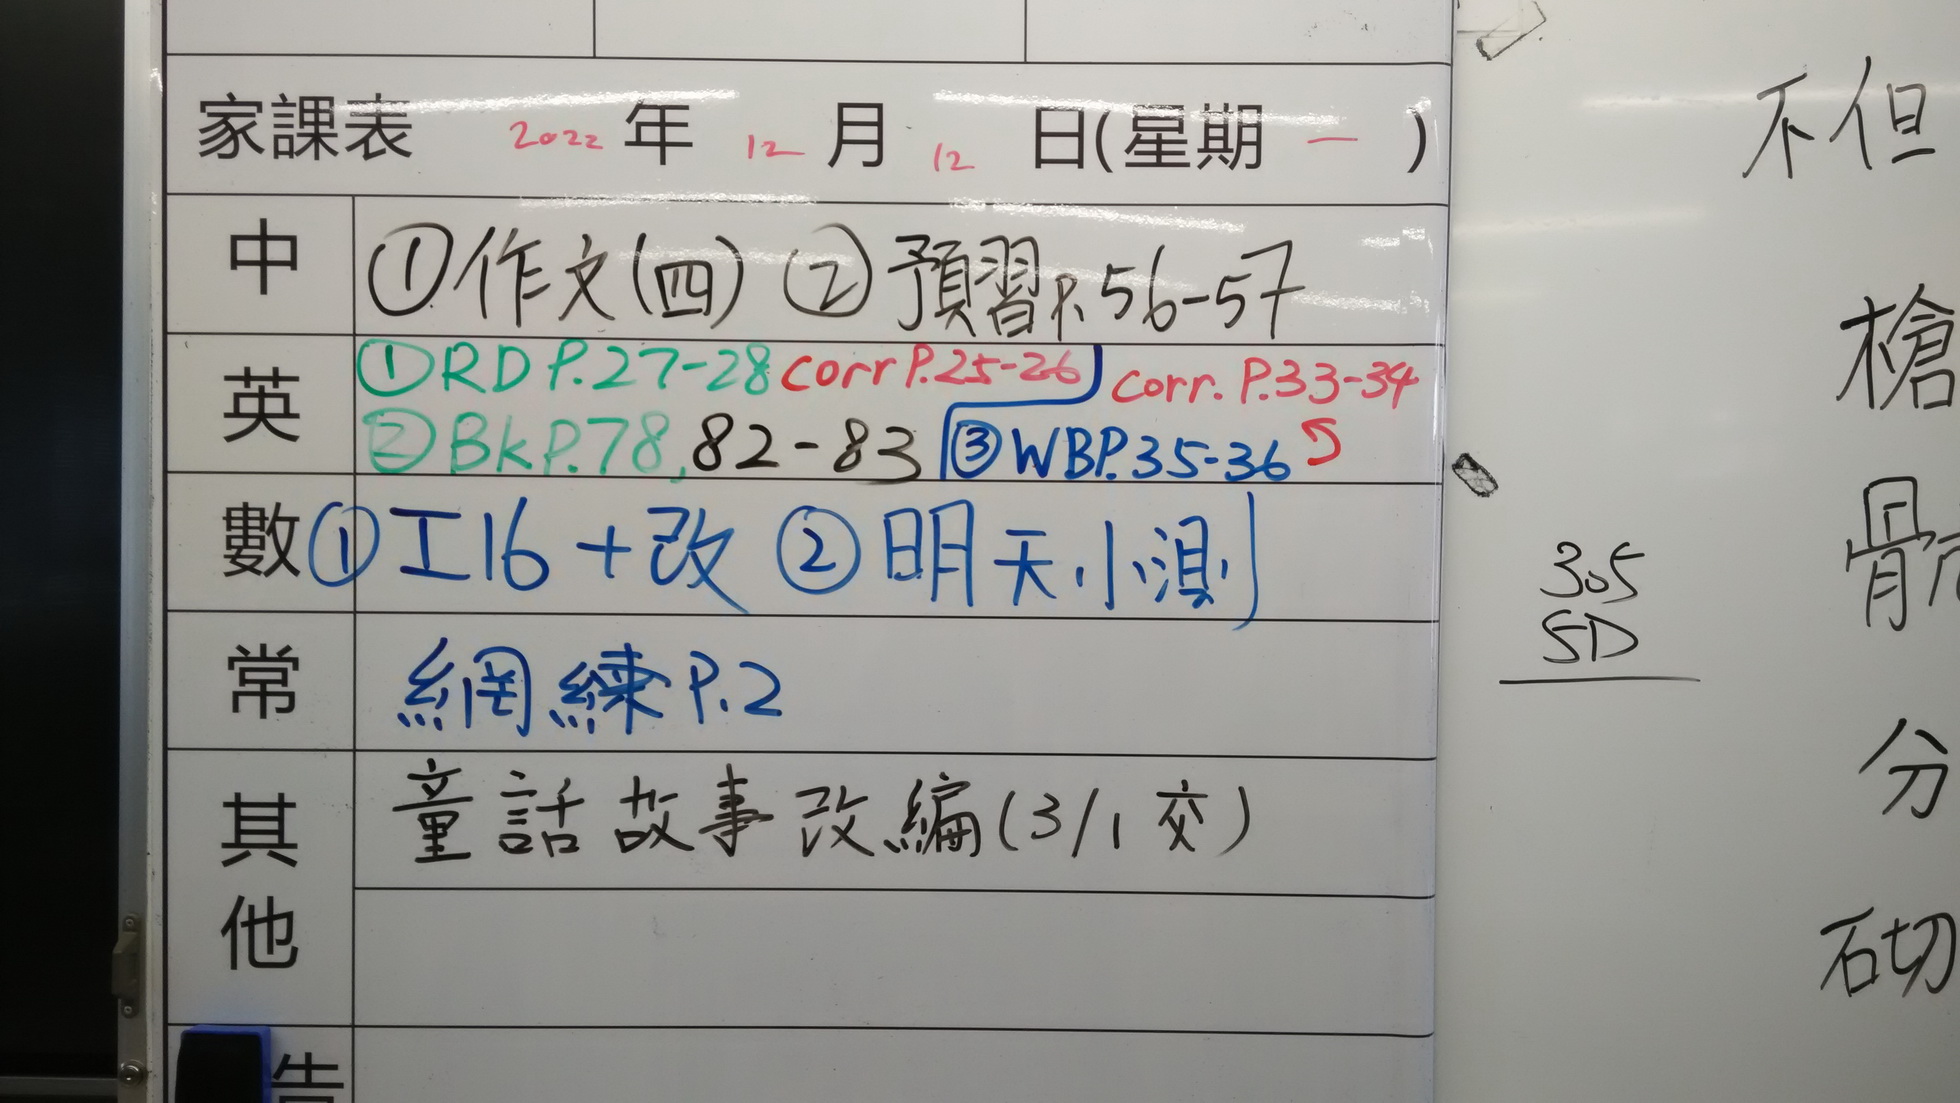 家課表 2022 年 12 月 12 日(星期 一 )
中 ①作文(四) ②預習P.56-57
英 ①RD P.27-28 corr P.25-26 corr. P.33-34
②Bk P.78, 82-83 ③WB P.35-36
數 ①工16+改 ②明天小測
常 網練 P.2
其他 童話故事改編(3/1 交)
告
不但
槍
305
5D
分
砌